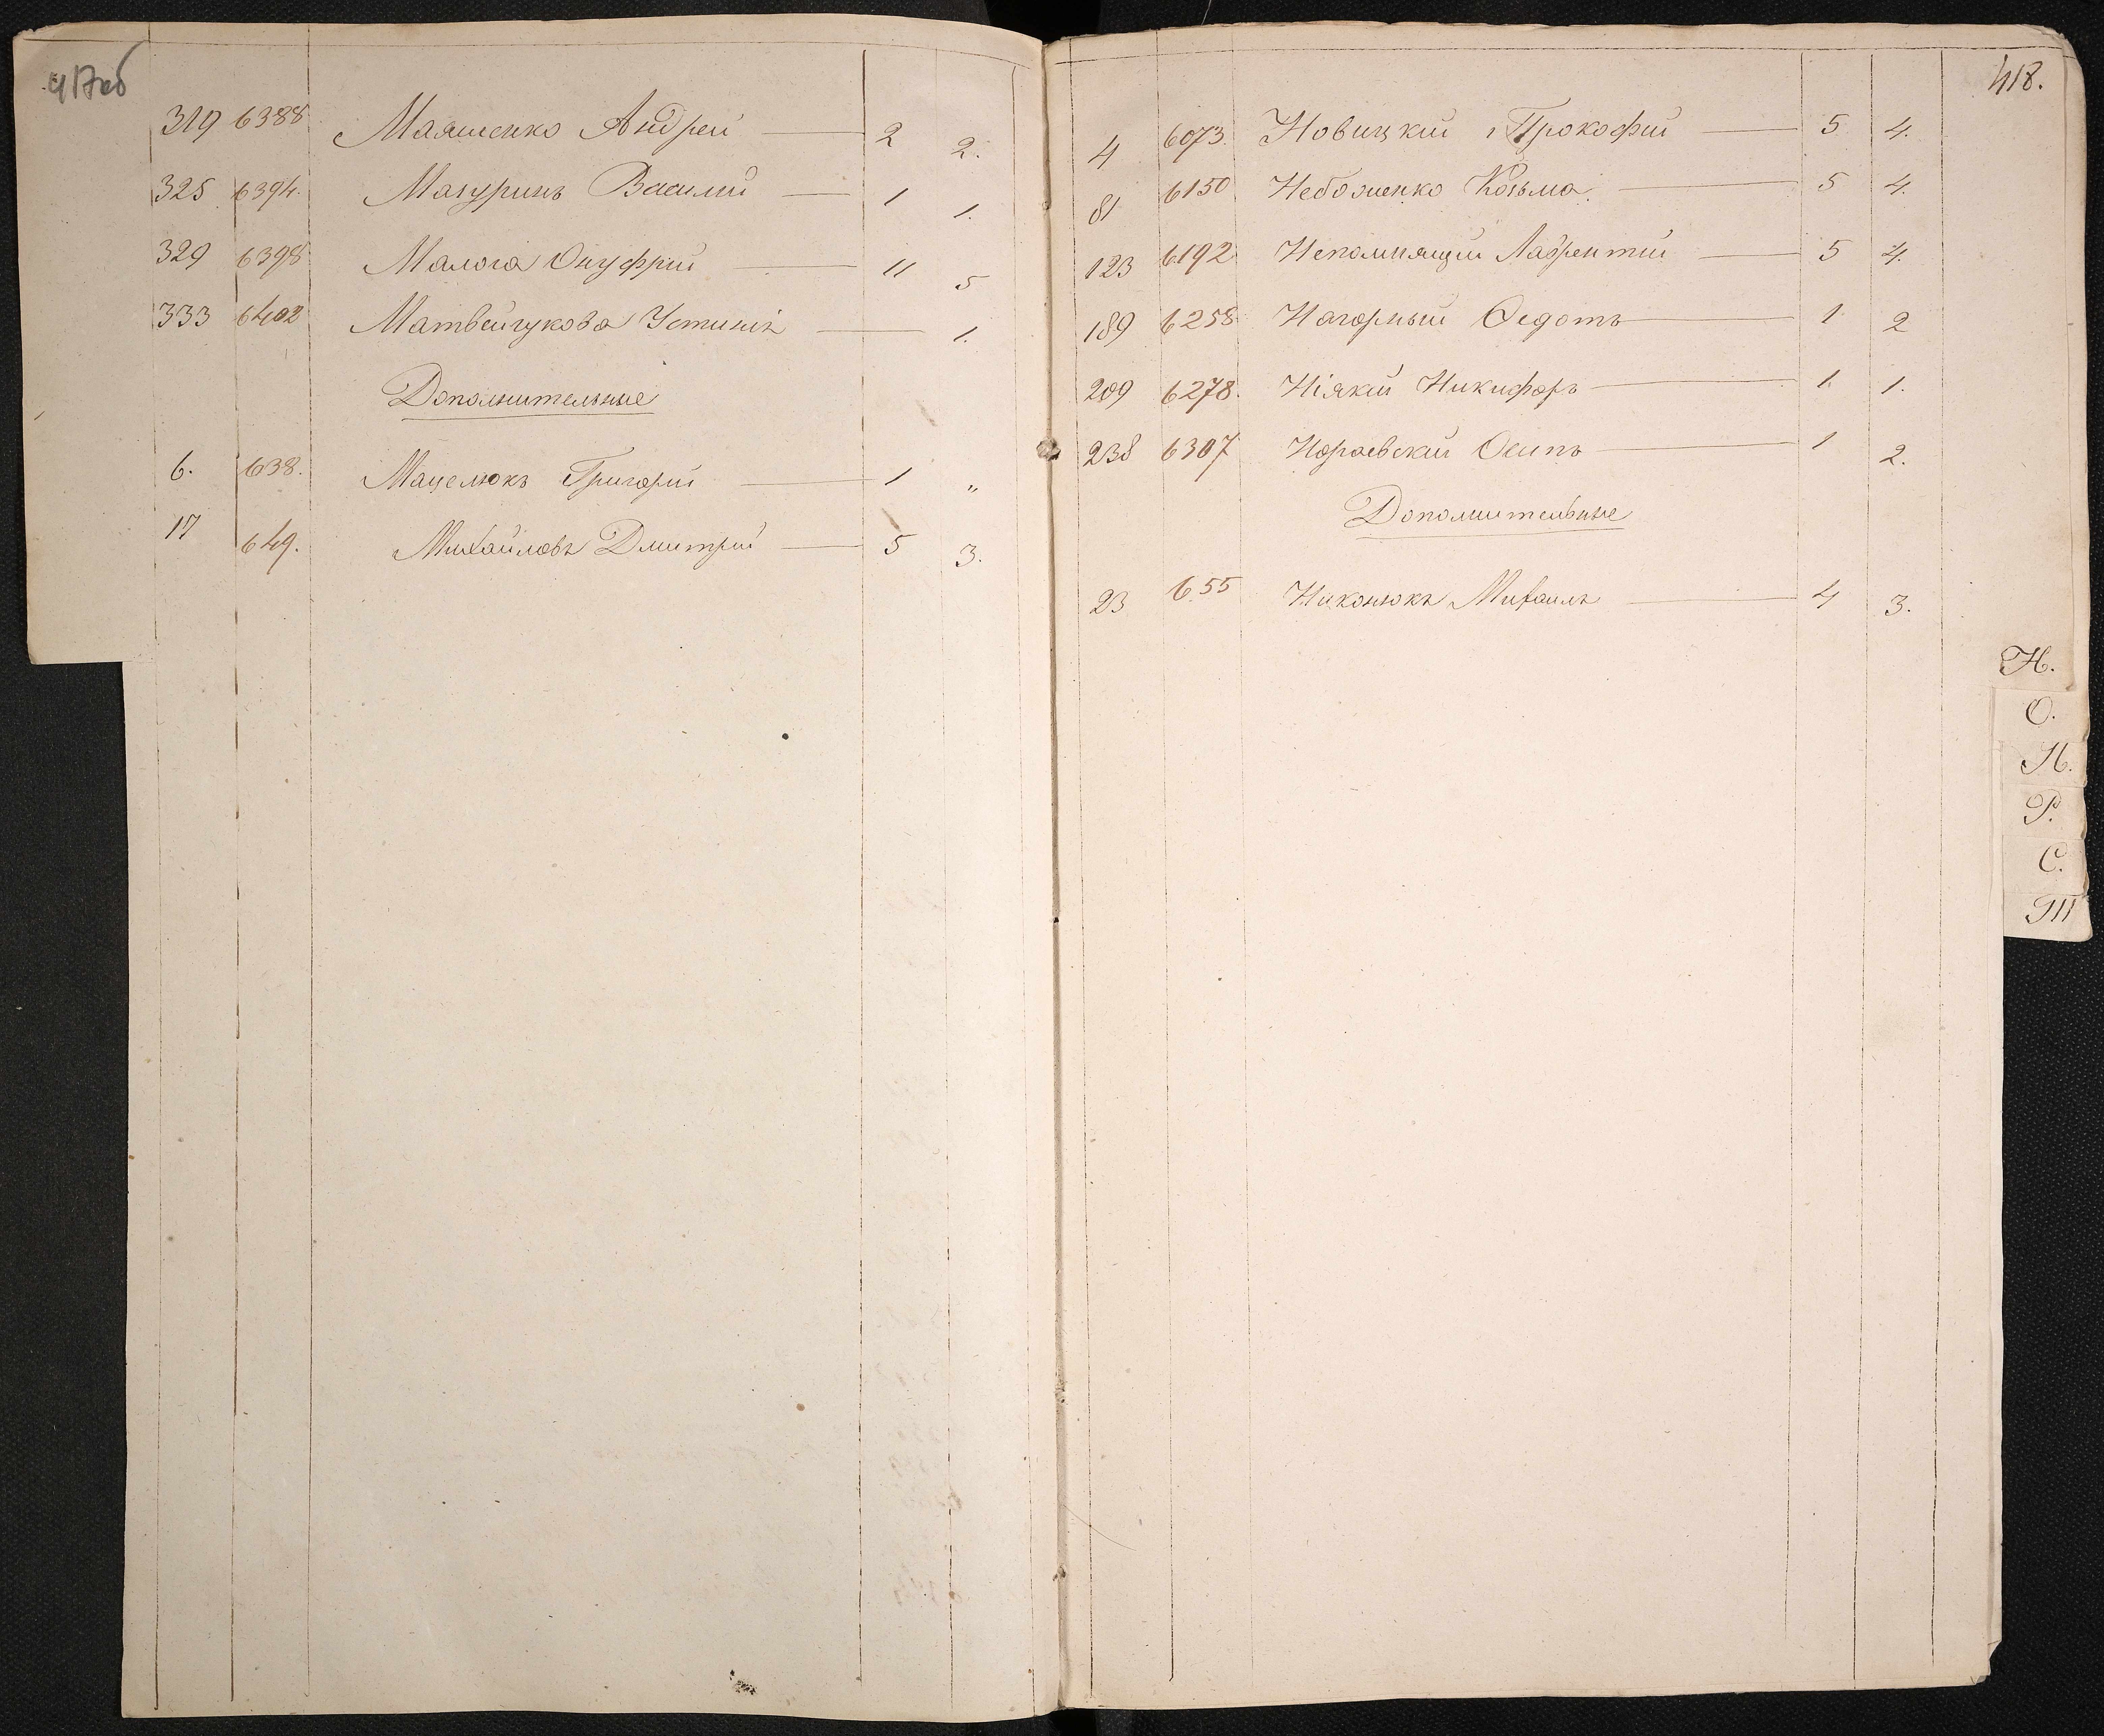 417об
319 6388 Маяшенко Андрей 2 2.
325 6394. Мазуринъ Василій 1 1.
329 6398 Малога Онуфрій 11 5
333 6402 Матвейчукова Устинія 1.
Дополнительные
6. 638. Мацелюкъ Григорій 1 "
17 649. Михайловъ Дмитрій 5 3.
418.
4 6073. Новицкій Прокофій 5 4.
81 6150 Небоженко Козьма 5 4.
123 6192 Непомнящій Лаврентій 5 4.
189 6258 Нагорный Федотъ 1 2
209 6278. Ніякій Никифоръ 1. 1.
238 6307 Осипъ 1 2.
Дополнительные
23 655 Никонюкъ Михаилъ 4 3.
Н.
О.
П.
Р.
С.
Т